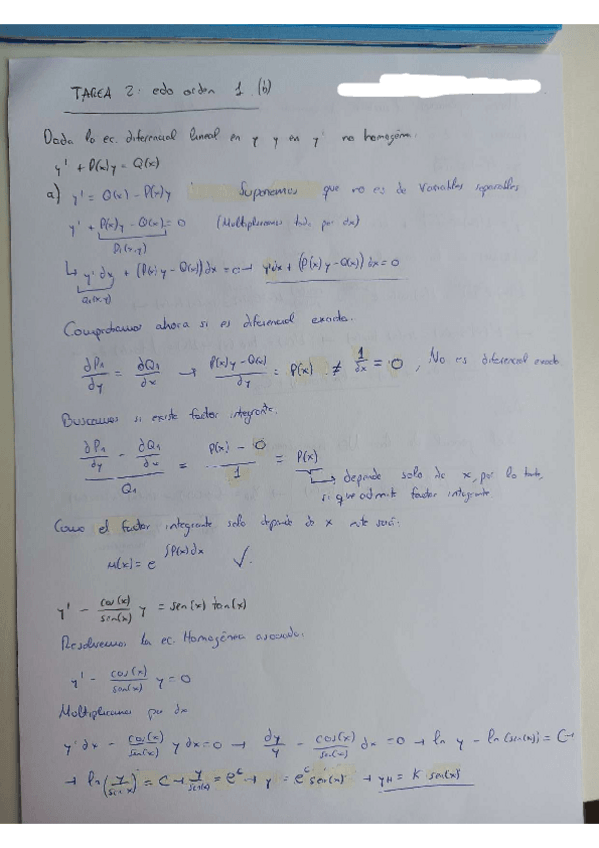 TAREA 2: edo orden 1 (b)
Dada la ec. diferencial lineal en y y en y' no homogénea.
y' + P(x)y = Q(x)
a) y' = Q(x) - P(x)y Suponemos que no es de Variables separables
y' + P(x)y - Q(x) = 0 (Multiplicamos todo por dx)
P₁(x,y)
↳ y'dx + (P(x)y - Q(x))dx = 0 → y'dx + (P(x)y - Q(x))dx = 0
Q₁(x,y)
Comprobamos ahora si es diferencial exacta.
∂P₁/∂y = ∂Q₁/∂x → P(x)y - Q(x)/∂y = P(x) ≠ 1/∂x = 0, No es diferencial exacta
Buscamos si existe factor integrante.
(∂P₁/∂y - ∂Q₁/∂x)/Q₁ = (P(x) - 0)/1 = P(x)
↳ depende solo de x, por lo tanto,
si que admite factor integrante
Como el factor integrante solo depende de x este será:
μ(x) = e^∫P(x)dx ✓.
y' - cos(x)/sen(x) y = sen(x) tan(x)
Resolvemos la ec. Homogénea asociada.
y' - cos(x)/sen(x) y = 0
Multiplicamos por dx
y'dx - cos(x)/sen(x) y dx = 0 → dy/y - cos(x)/sen(x) dx = 0 → ln y - ln(sen(x)) = C →
→ ln(y/sen x) = C → y/sen(x) = e^c → y = e^c sen(x) → yH = K sen(x)